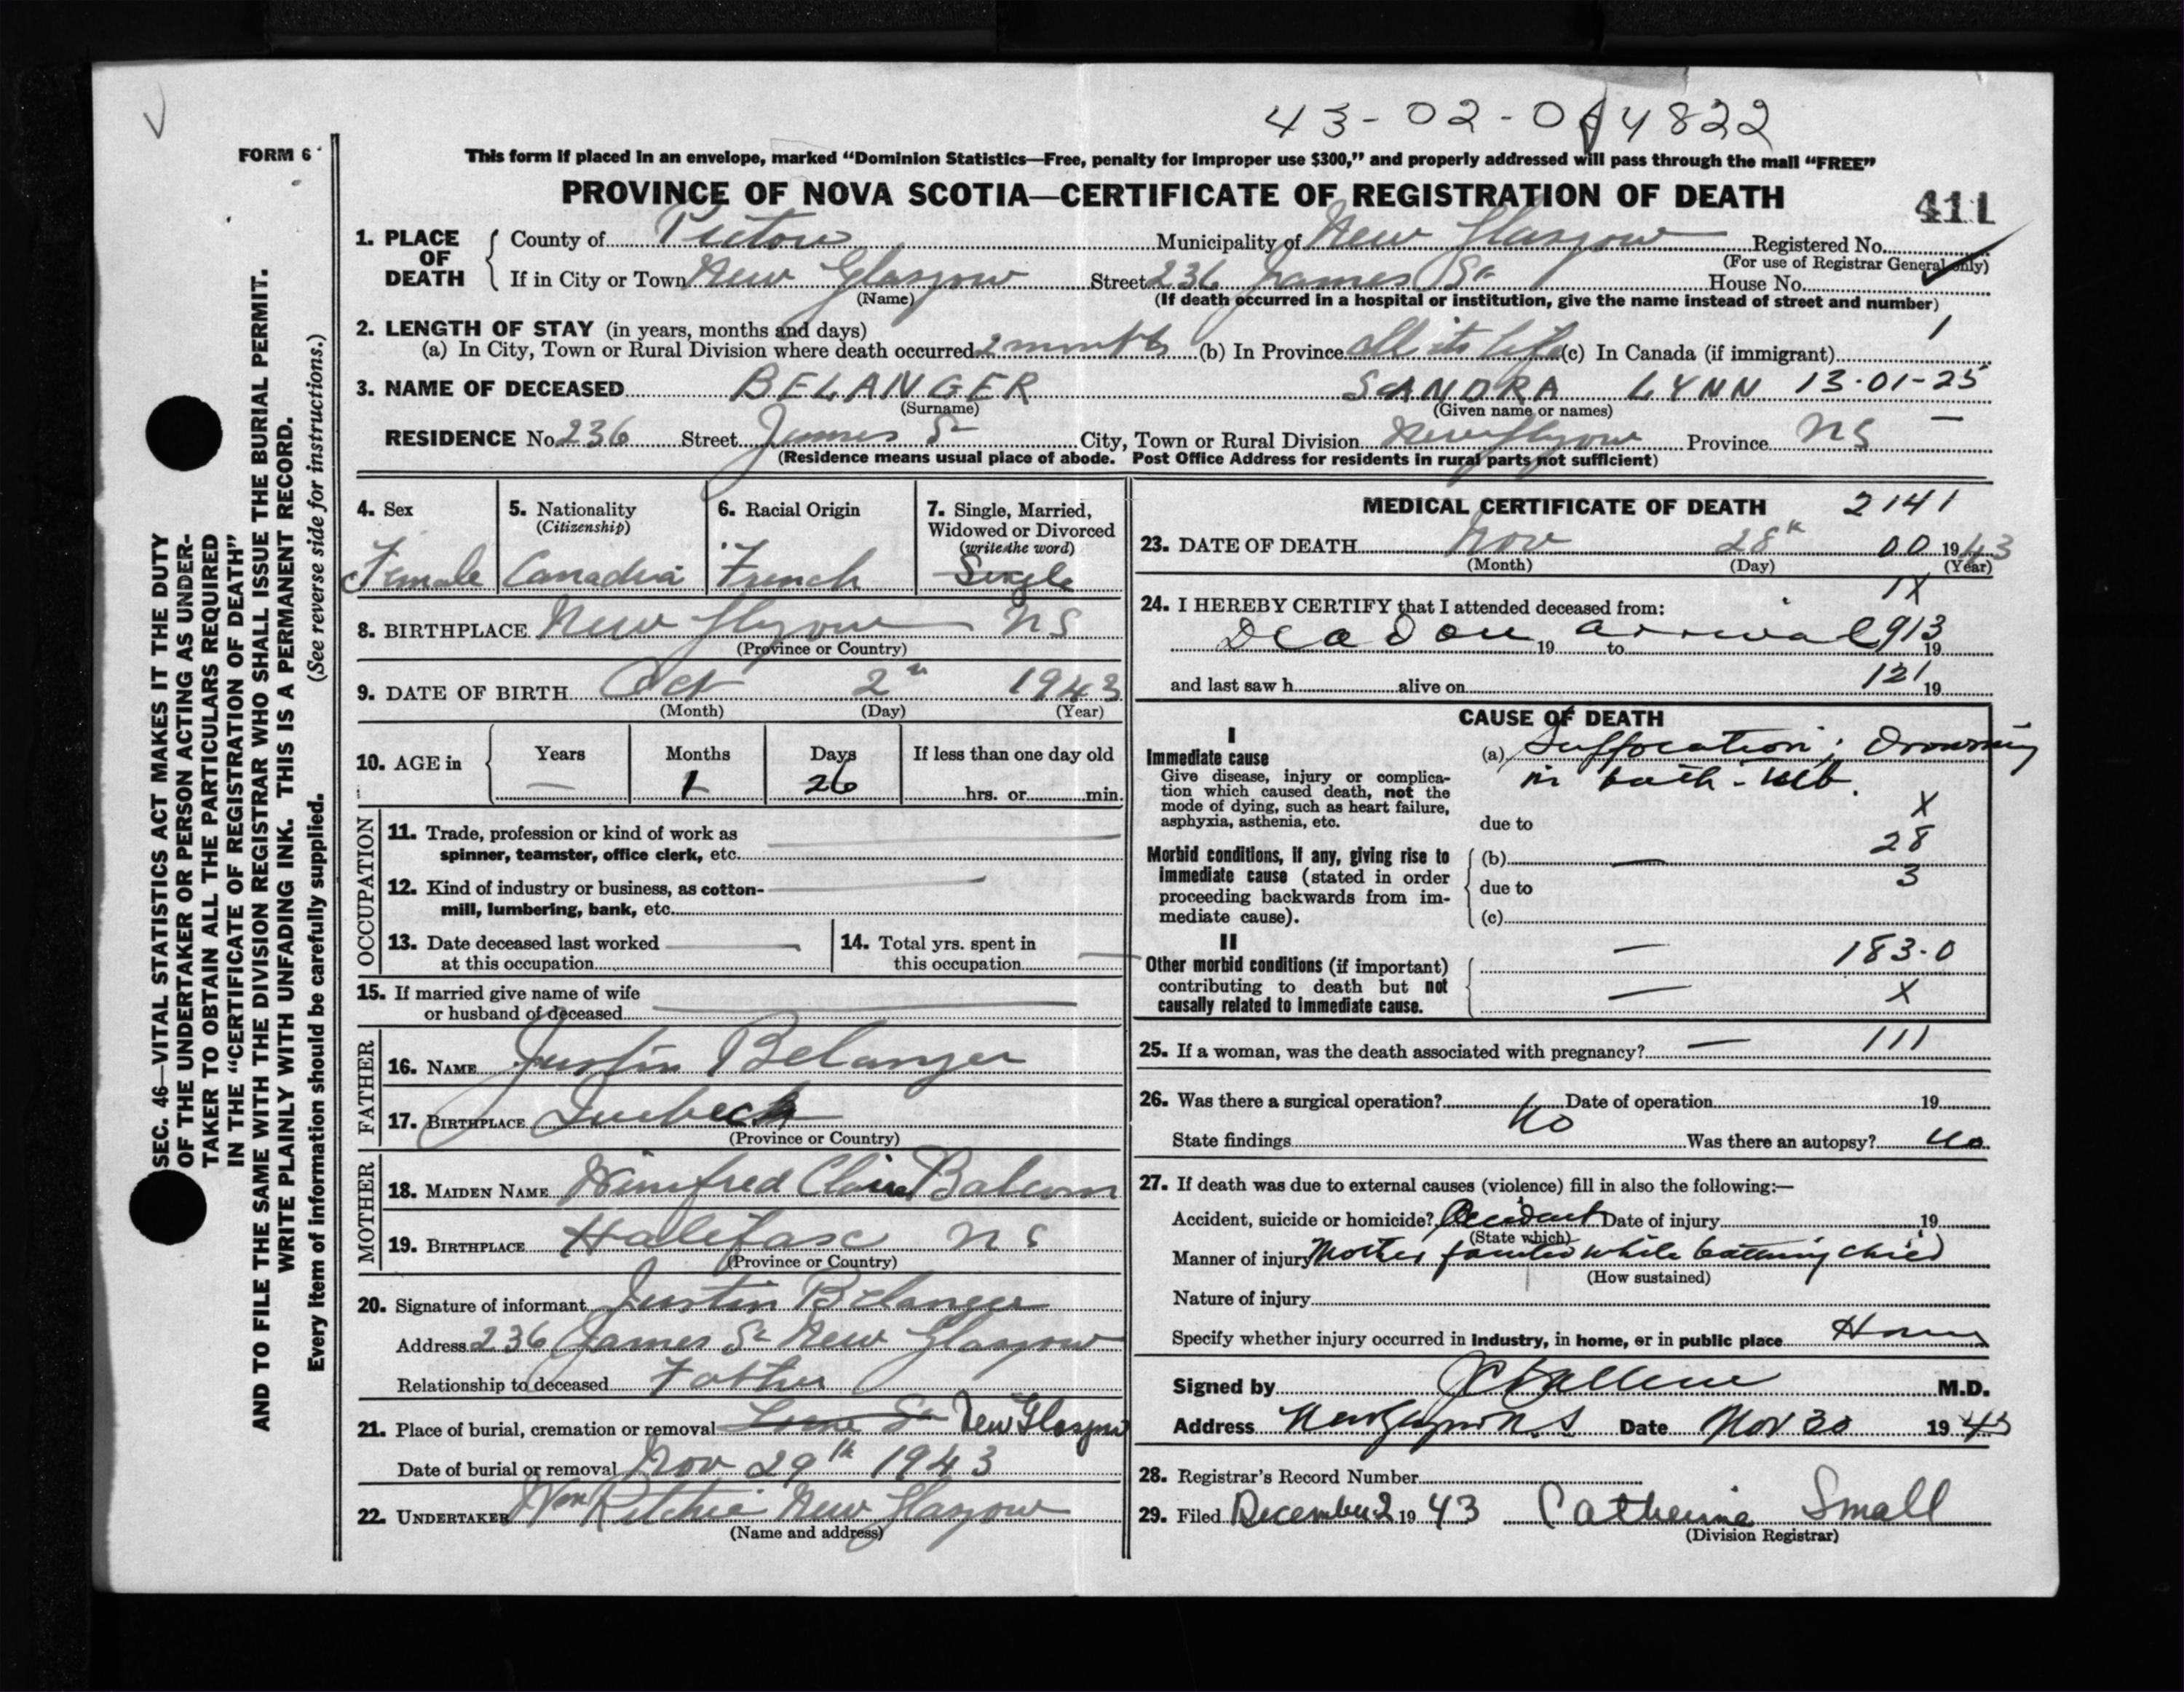 43-02-004822
FORM 6
This form if placed in an envelope, marked “Dominion Statistics—Free, penalty for improper use $300,” and properly addressed will pass through the mail “FREE”
PROVINCE OF NOVA SCOTIA—CERTIFICATE OF REGISTRATION OF DEATH
411
1. PLACE OF DEATH
County of Pictou Municipality of New Glasgow Registered No.
(For use of Registrar General only)
If in City or Town New Glasgow Street 236 James St House No.
(Name) (If death occurred in a hospital or institution, give the name instead of street and number)
2. LENGTH OF STAY (in years, months and days) 1
(a) In City, Town or Rural Division where death occurred 2 months (b) In Province all its life (c) In Canada (if immigrant)
3. NAME OF DECEASED BELANGER SANDRA LYNN 13-01-25
(Surname) (Given name or names)
RESIDENCE No. 236 Street James St City, Town or Rural Division New Glasgow Province NS
(Residence means usual place of abode. Post Office Address for residents in rural parts not sufficient)
4. Sex
Female
5. Nationality
(Citizenship)
Canadian
6. Racial Origin
French
7. Single, Married,
Widowed or Divorced
(write the word)
Single
8. BIRTHPLACE New Glasgow NS
(Province or Country)
9. DATE OF BIRTH Oct 2nd 1943
(Month) (Day) (Year)
10. AGE in
Years Months Days If less than one day old
— 1 26 hrs. or min.
OCCUPATION
11. Trade, profession or kind of work as
spinner, teamster, office clerk, etc.
12. Kind of industry or business, as cotton-
mill, lumbering, bank, etc.
13. Date deceased last worked
at this occupation
14. Total yrs. spent in
this occupation
15. If married give name of wife
or husband of deceased
FATHER
16. NAME Justin Belanger
17. BIRTHPLACE Quebec
(Province or Country)
MOTHER
18. MAIDEN NAME Winifred Claire Balcom
19. BIRTHPLACE Halifax NS
(Province or Country)
20. Signature of informant Justin Belanger
Address 236 James St New Glasgow
Relationship to deceased Father
21. Place of burial, cremation or removal New Glasgow
Date of burial or removal Nov 29th 1943
22. UNDERTAKER Wm Ritchie New Glasgow
(Name and address)
MEDICAL CERTIFICATE OF DEATH 2141
23. DATE OF DEATH Nov 28th 00 1943
(Month) (Day) (Year)
1X
24. I HEREBY CERTIFY that I attended deceased from:
Dead on 19 to arrival 913 19
and last saw h alive on 121 19
CAUSE OF DEATH
I
Immediate cause
Give disease, injury or complica-
tion which caused death, not the
mode of dying, such as heart failure,
asphyxia, asthenia, etc.
(a) Suffocation; Drowning
in bath-tub.
X
due to
28
Morbid conditions, if any, giving rise to
immediate cause (stated in order
proceeding backwards from im-
mediate cause).
(b) —
3
due to
(c)
II
Other morbid conditions (if important)
contributing to death but not
causally related to immediate cause.
— 183-0
— X
25. If a woman, was the death associated with pregnancy? — 111
26. Was there a surgical operation? No Date of operation 19
State findings Was there an autopsy? No
27. If death was due to external causes (violence) fill in also the following:—
Accident, suicide or homicide? Accident Date of injury 19
(State which)
Manner of injury Mother fainted while bathing child
(How sustained)
Nature of injury
Specify whether injury occurred in industry, in home, or in public place Home
Signed by M.D.
Address New Glasgow N.S Date Nov 30 1943
28. Registrar's Record Number
29. Filed December 2 1943 Catherine Small
(Division Registrar)
SEC. 46—VITAL STATISTICS ACT MAKES IT THE DUTY
OF THE UNDERTAKER OR PERSON ACTING AS UNDER-
TAKER TO OBTAIN ALL THE PARTICULARS REQUIRED
IN THE “CERTIFICATE OF REGISTRATION OF DEATH”
AND TO FILE THE SAME WITH THE DIVISION REGISTRAR WHO SHALL ISSUE THE BURIAL PERMIT.
WRITE PLAINLY WITH UNFADING INK. THIS IS A PERMANENT RECORD.
Every item of information should be carefully supplied. (See reverse side for instructions.)